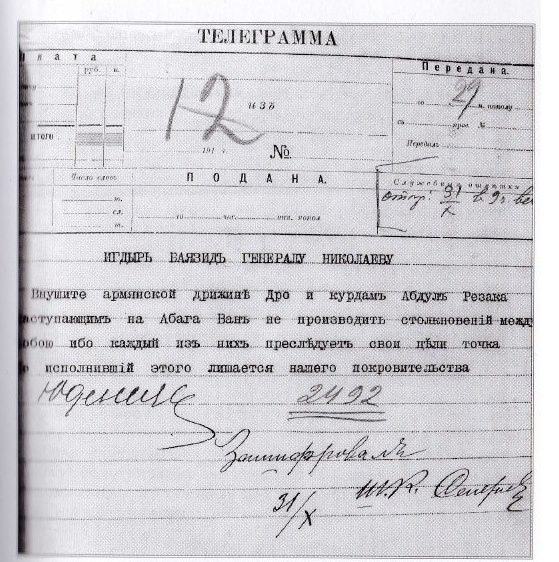 ТЕЛЕГРАММА
лата
руб. к.
итого
12
изъ
191 г.
№
Передана.
29
го м. пополу
съ пров. №
Передалъ
Число словъ
т.
сл.
т.
ПОДАНА.
го час. мин. попол
Служебныя отмѣтки
отпр. 31/X в 9 ч. ве
ИГДЫРЬ БАЯЗИДЬ ГЕНЕРАЛУ НИКОЛАЕВУ
Внушите армянской дрижинѣ Дро и курдамъ Абдулъ Резака
аступающимъ на Абага Ванъ не производить столкновенiй между
обою ибо каждый изъ нихъ преслѣдуетъ свои цѣли точка
е исполнившiй этого лишается нашего покровительства
Юденичъ
2492
Зашифровалъ
31/X